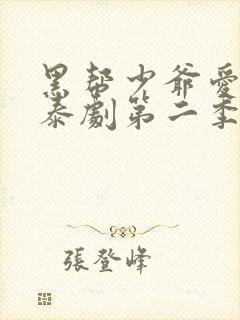 黑帮少爷爱
泰劇第二季
張登峰